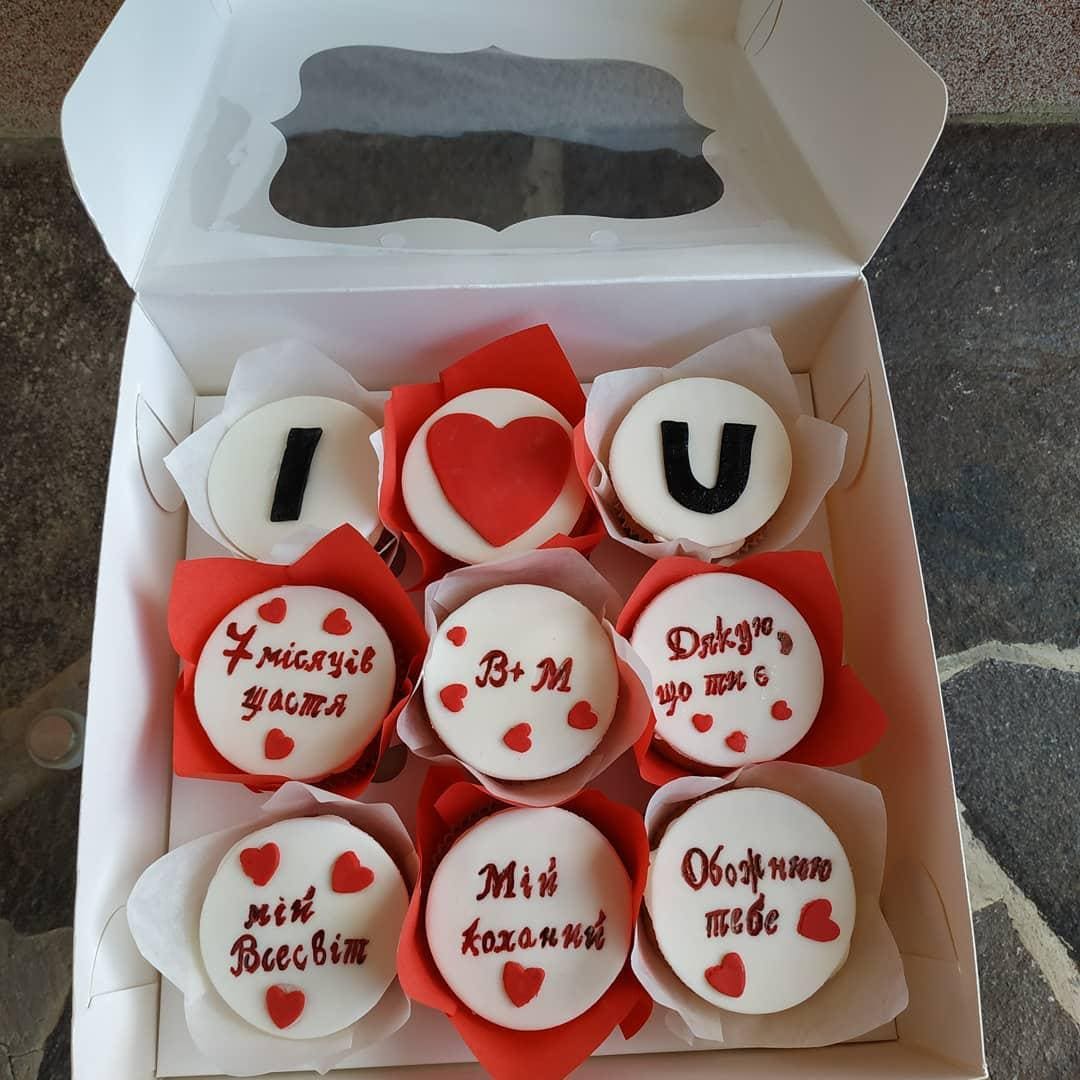 I
U
7 місяців
щастя
В+М
Дякую,
що ти є
мій
Всесвіт
Мій
коханий
Обожнюю
тебе